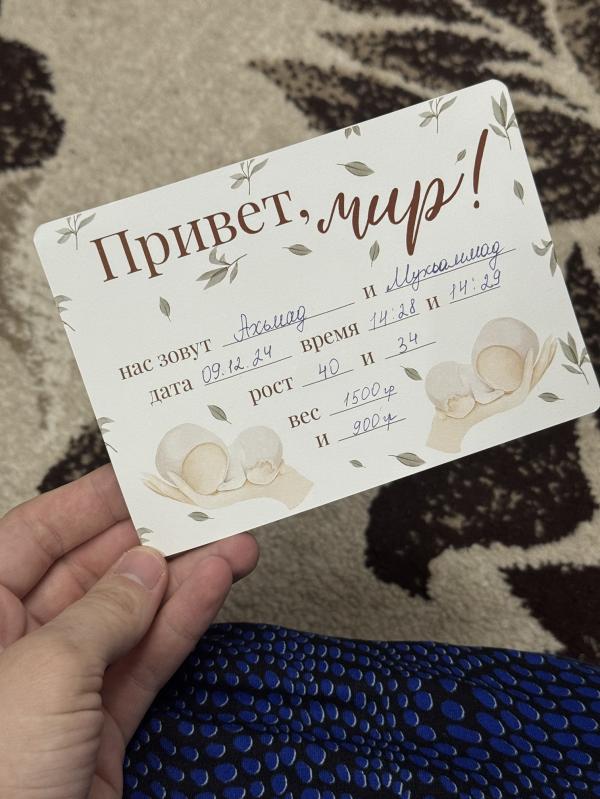 Привет, мир!
нас зовут Ахьмад и Мухьаммад
дата 09.12.24 время 14:28 и 14:29
рост 40 и 34
вес 1500 гр
и 900 гр